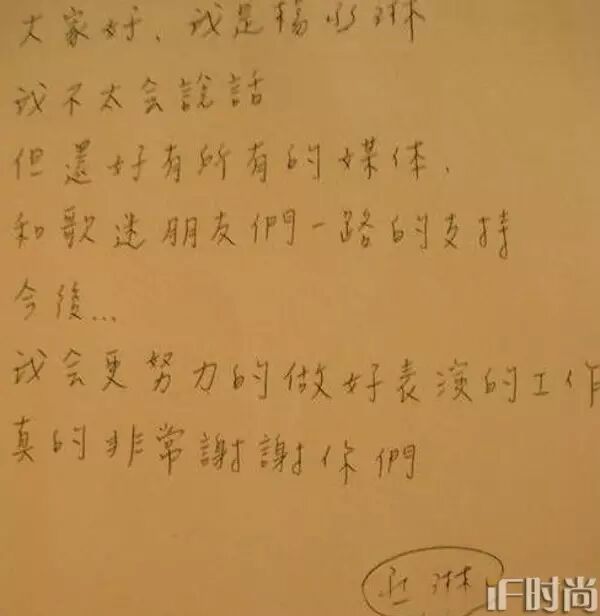 大家好、我是楊丞琳
我不太会說話
但還好有所有的媒体、
和歌迷朋友們一路的支持
今後...
我会更努力的做好表演的工作
真的非常謝謝你們
丞琳
iF时尚